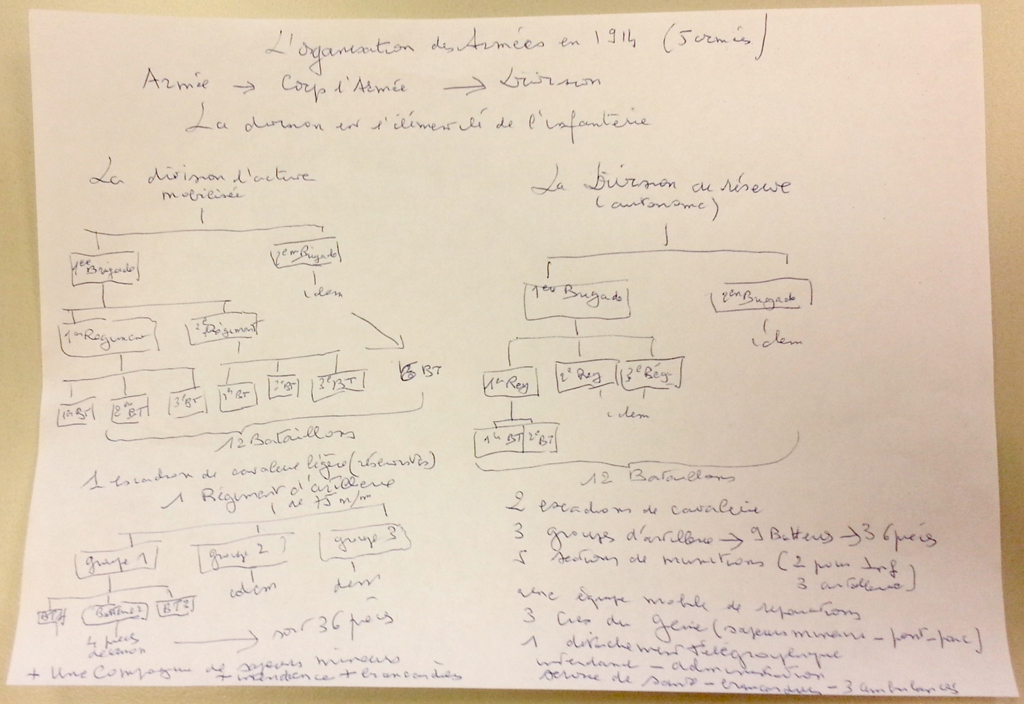 L'organisation des Armées en 1914 (5 armées)
Armée → Corp d'Armée → Division
La division est l'élément clé de l'infanterie
La division d'active
mobilisée
1ère Brigade
2em Brigade
idem
1er Régiment
2e Régiment
1er BT
2em BT
3e BT
1er BT
2e BT
3e BT
6 BT
12 Bataillons
1 escadron de cavalerie légère (réservistes)
1 Régiment d'artillerie
de 75 m/m
groupe 1
groupe 2
groupe 3
idem
idem
Batterie 2
BT3
4 pièces
→ soit 36 pièces
+ Une Compagnie de sapeurs mineurs
+ intendance + brancardiers
La Division de réserve
(autonome)
1ère Brigade
2em Brigade
idem
1er Reg
2e Reg
3e Rég
idem
1er BT
2e BT
12 Bataillons
2 escadrons de cavalerie
3 groupes d'artillerie → 9 Batteries → 36 pièces
5 sections de munitions (2 pour Inf
3 artillerie)
une équipe mobile de réparations
3 Cies du Génie (sapeurs mineurs - pont - parc)
1 détachement télégraphique
intendance - administration
service de santé - brancardiers - 3 ambulances